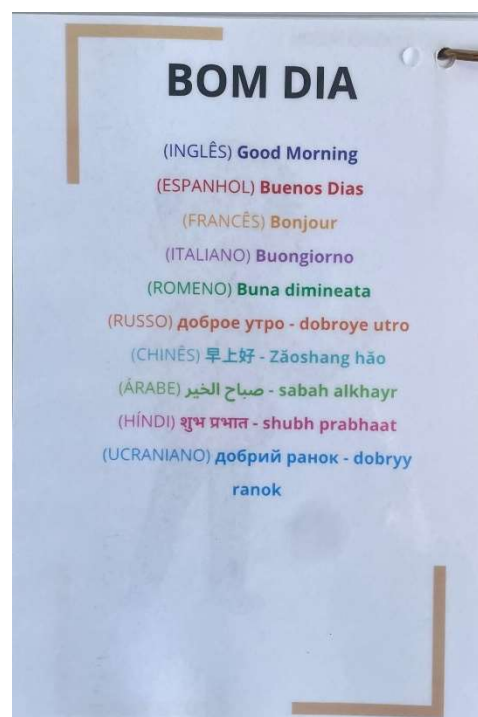 BOM DIA
(INGLÊS) Good Morning
(ESPANHOL) Buenos Dias
(FRANCÊS) Bonjour
(ITALIANO) Buongiorno
(ROMENO) Buna dimineata
(RUSSO) доброе утро - dobroye utro
(CHINÊS) 早上好 - Zăoshang hăo
(ÁRABE) صباح الخير - sabah alkhayr
(HÍNDI) शुभ प्रभात - shubh prabhaat
(UCRANIANO) добрий ранок - dobryy
ranok